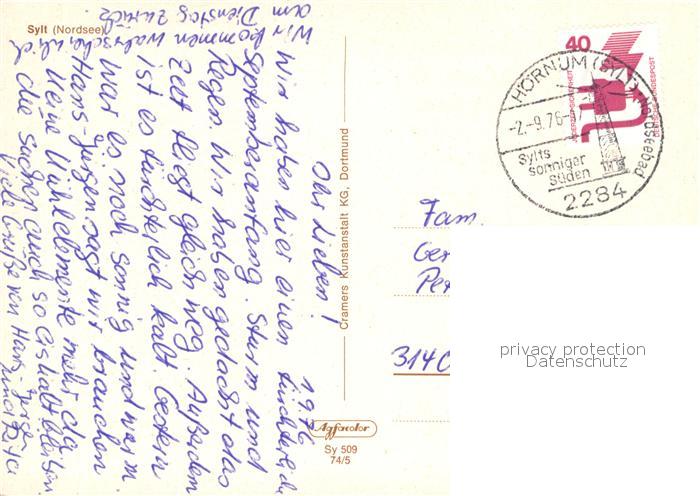 Sylt (Nordsee)
1.9.76
Ihr Lieben!
Wir haben hier einen fürchterlichen
Septemberanfang. Sturm und
Regen. Wir haben gedacht das
Zelt fliegt gleich weg. Außerdem
ist es fürchterlich kalt. Gestern
war es noch sonnig und warm.
Hans-Jürgen sagt wir brauchen
keine Kühlelemente mehr da
die Sachen auch so eiskalt bleiben
Viele Grüße von Hans-Jürgen
und
Wir kommen wahrscheinlich
am Dienstag zurück.
Cramers Kunstanstalt KG, Dortmund
Agfacolor
Sy 509
74/5
40
JEDERZEIT SICHERHEIT
DEUTSCHE BUNDESPOST
HÖRNUM (SYLT) Nordseebad
-2.-9.76-
Sylts
sonniger
Süden
2284
Fam.
Ger
Pe
314
privacy protection
Datenschutz